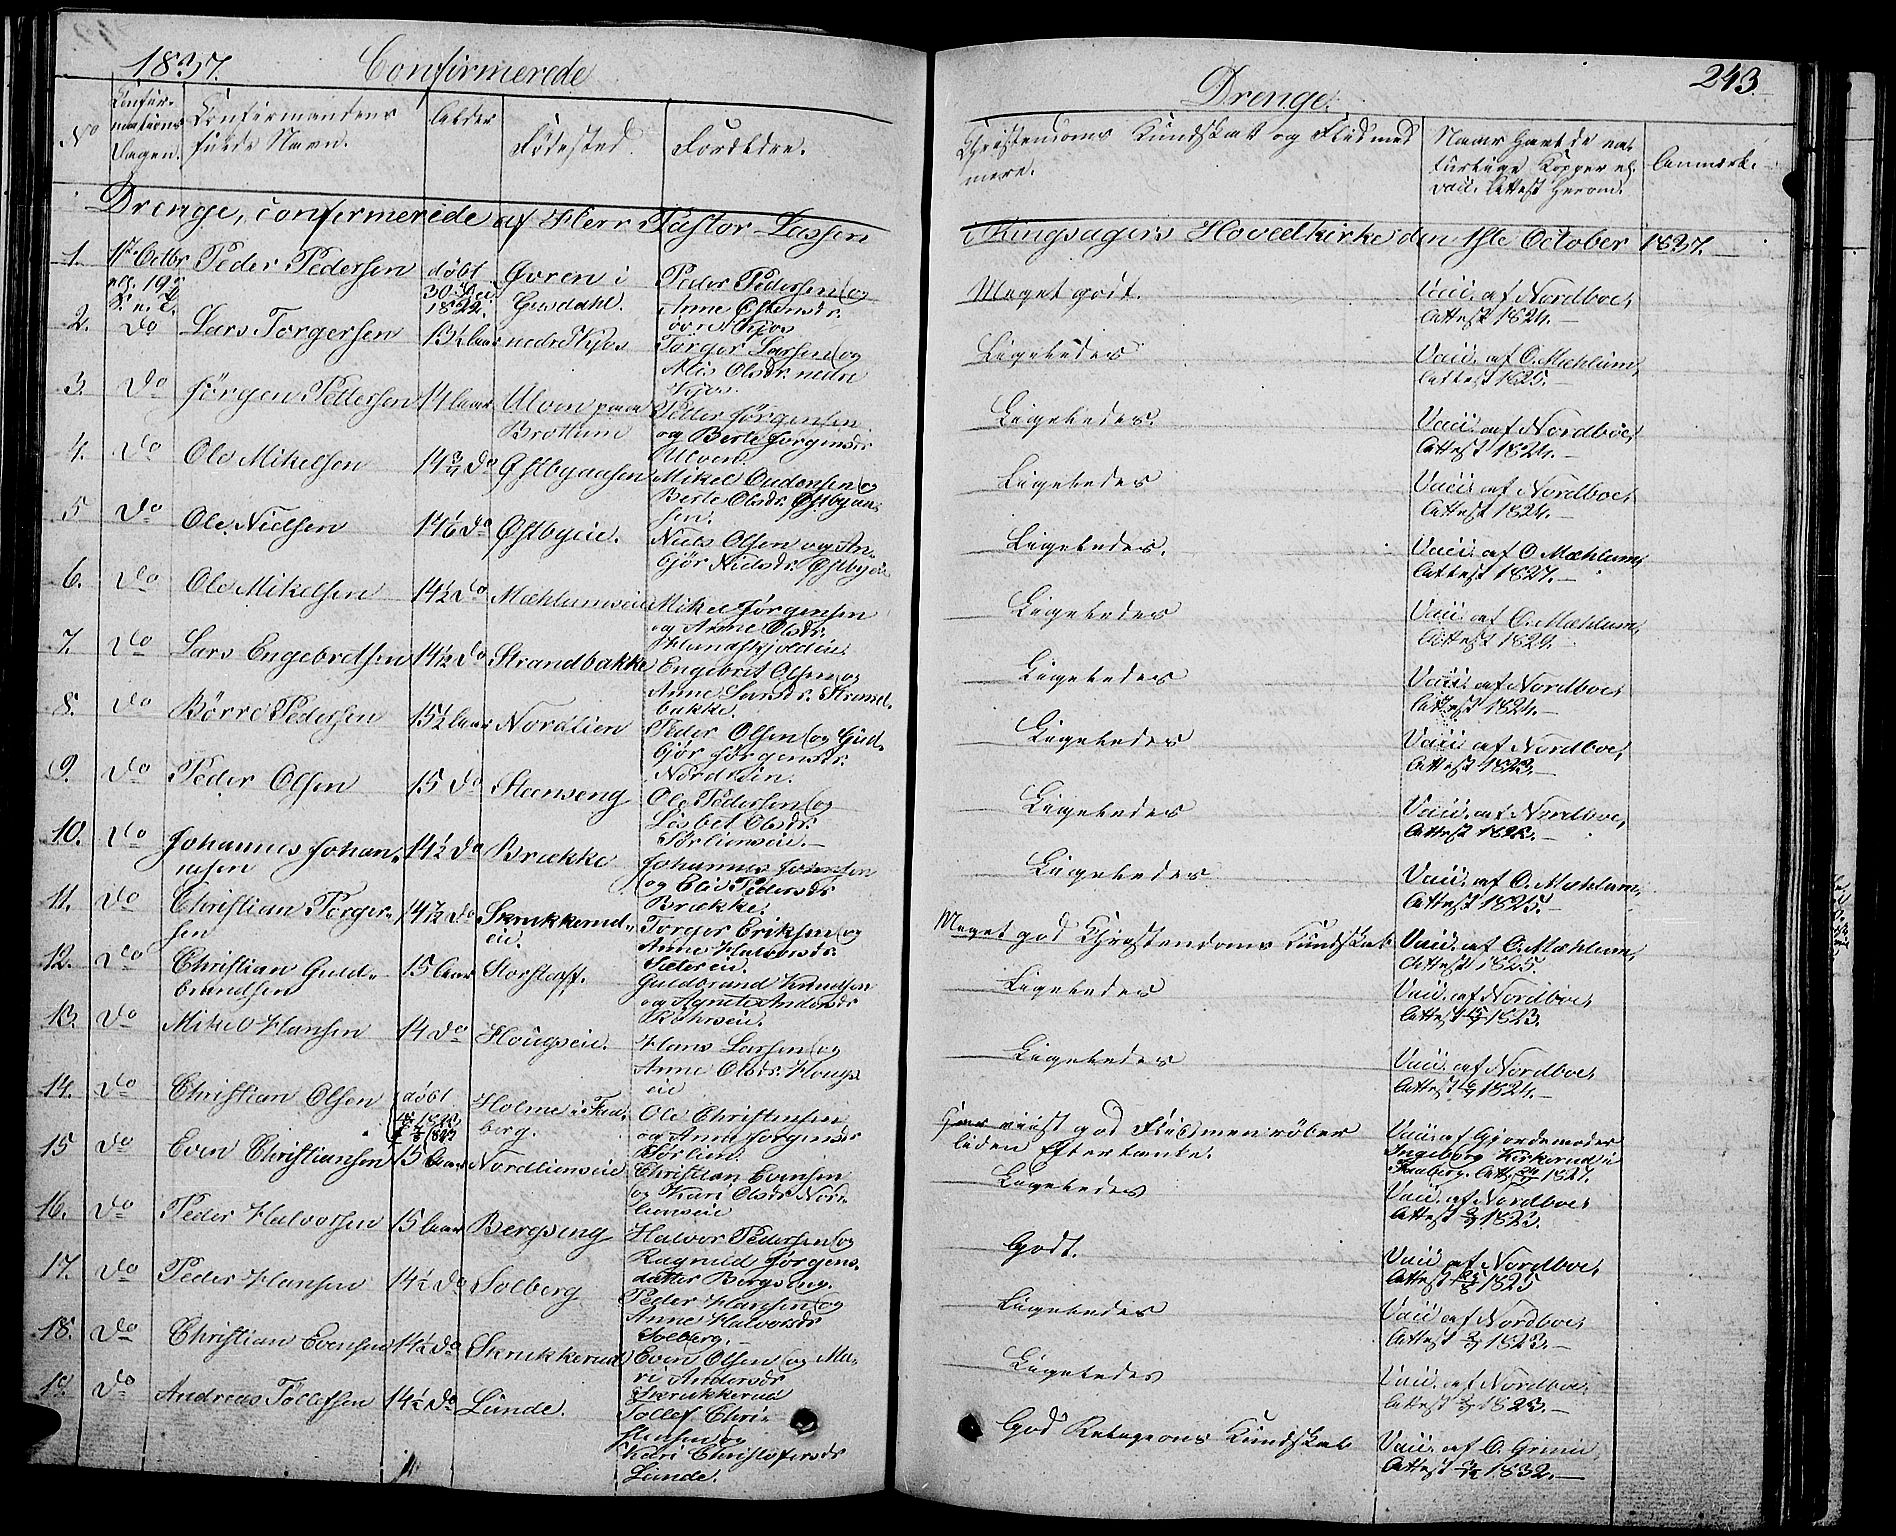 1837. Confirmerede
No
Confir-
mations
Dagen.
Confirmandens
fulde Navn.
Alder
Födested.
Forældre.
Drenge, confirmerede af Herr Pastor Lassen
1. 1ste Octbr Peder Pedersen döbt 30 1822. Øvren i Gusdahl. Peder Pedersen og
Anne Estensdr.
2. Do Lars Torgersen 13½ Aar nedre Kjos Torger Larsen og
Alis Olsdr. nedre
Kjos.
3. Do Jörgen Pettersen 14 Aar Ulven paa Brottum Petter Jörgensen
og Berte Jorgensdr.
Ulven.
4. Do Ole Mikelsen 14 Do Østbyaasen Mikel Andersen og
Berte Olsdr. Østbyaa-
sen.
5 Do Ole Nielsen 14 1/6 Do Østbyeie. Niels Olsen og An-
gjør Nielsdr. Østbyeie
6. Do Ole Mikelsen 14½ Do Mæhlumseie Mikel Jörgensen
og Anne Olsdr.
7. Do Lars Engebretsen 14½ Do Strandbakke Engebret Olsen og
Anne Larsdr. Strand-
bakke.
8. Do Börre Pedersen 15½ Aar Nordlien Peder Olsen og Gud-
Gjör Jörgensdr.
Nordlien.
9. Do Peder Olsen 15 Do Stenseng Ole Pedersen og
Lisbet Olsdr.
10. Do Johannes Johan-
nesen 14½ Do Brække Johannes Joensen
og Elie Pedersdr
Brække.
11. Do Christian Torger-
sen 14 7/12 Do Skrukkerud-
eie. Torger Eriksen og
Anne Halvorsdr.
Sætereie.
12. Do Christian Guld-
brandsen 15 Aar Storstaff. Guldbrand Knudsen
og Agnete Andersdr
13. Do Mikel Hansen 14 Do Hougseie. Hans Larsen og
Anne Olsdr. Hougs
eie
14. Do Christian Olsen döbt 1823 Holme i Faa-
berg. Ole Christensen
og Anne Jorgensdr
15 Do Even Christiansen 15 Aar Nordlienseie Christian Evensen
og Kari Olsdr. Nor-
lienseie
16. Do Peder Halvorsen 15 Aar Bergseng Halvor Pedersen og
Ragnild Jörgens-
datter Bergseng.
17. Do Peder Hansen 14½ Do Solberg Peder Hansen og
Anne Halvorsdr
Solberg.
18. Do Christian Evensen 14½ Do Skrukkerud Even Olsen og Ma-
ri Andersdr
Skrukkerud
19. Do Andreas Tollefsen 14½ Do Lunde. Tollef Chri-
stensen og
Kari Christofersdr
Lunde.
Drenge. 243.
Christendoms Kundskab og Flid med
mere.
Naar havt de na-
turlige Kopper el.
vacc. Attest herom.
Anmærk.
i Ringsagers Hovedkirke den 1ste October 1837.
Meget godt. Vacc. af Nordboe,
Attest 1824.
Ligeledes Vacc. af O. Mæhlum,
Attest 1825.
Ligeledes. Vacc. af Nordboe,
Attest 1824.
Ligeledes Vacc. af Nordboe,
Attest 1824.
Ligeledes. Vacc. af O. Mæhlum,
Attest 1827.
Ligeledes Vacc. af O. Mæhlum,
Attest 1824.
Ligeledes Vacc. af Nordboe,
Attest 1824.
Ligeledes Vacc. af Nordboe,
Attest 1823.
Ligeledes Vacc. af Nordboe,
Attest
Ligeledes Vacc. af O. Mæhlum,
Attest 1825.
Meget god Christendoms Kundskab Vacc. af O. Mæhlum,
Attest 1825.
Ligeledes Vacc. af Nordboe,
Attest 1823.
Ligeledes Vacc. af Nordboe,
Attest 1824.
viist god Flid men röber
liden Eftertanke. Vacc. af Gjordemoder
Ingeborg Kirkerud i
Faaberg. Att. 1827.
Ligeledes Vacc. af Nordboe,
Attest 1823.
Godt. Vacc. af Nordboe,
Attest 1825
Ligeledes Vacc. af Nordboe,
Attest 1823.
Ligeledes Vacc. af Nordboe,
Attest 1823.
God Religions Kundskab Vacc. af O. Grimie,
Attest 1832.